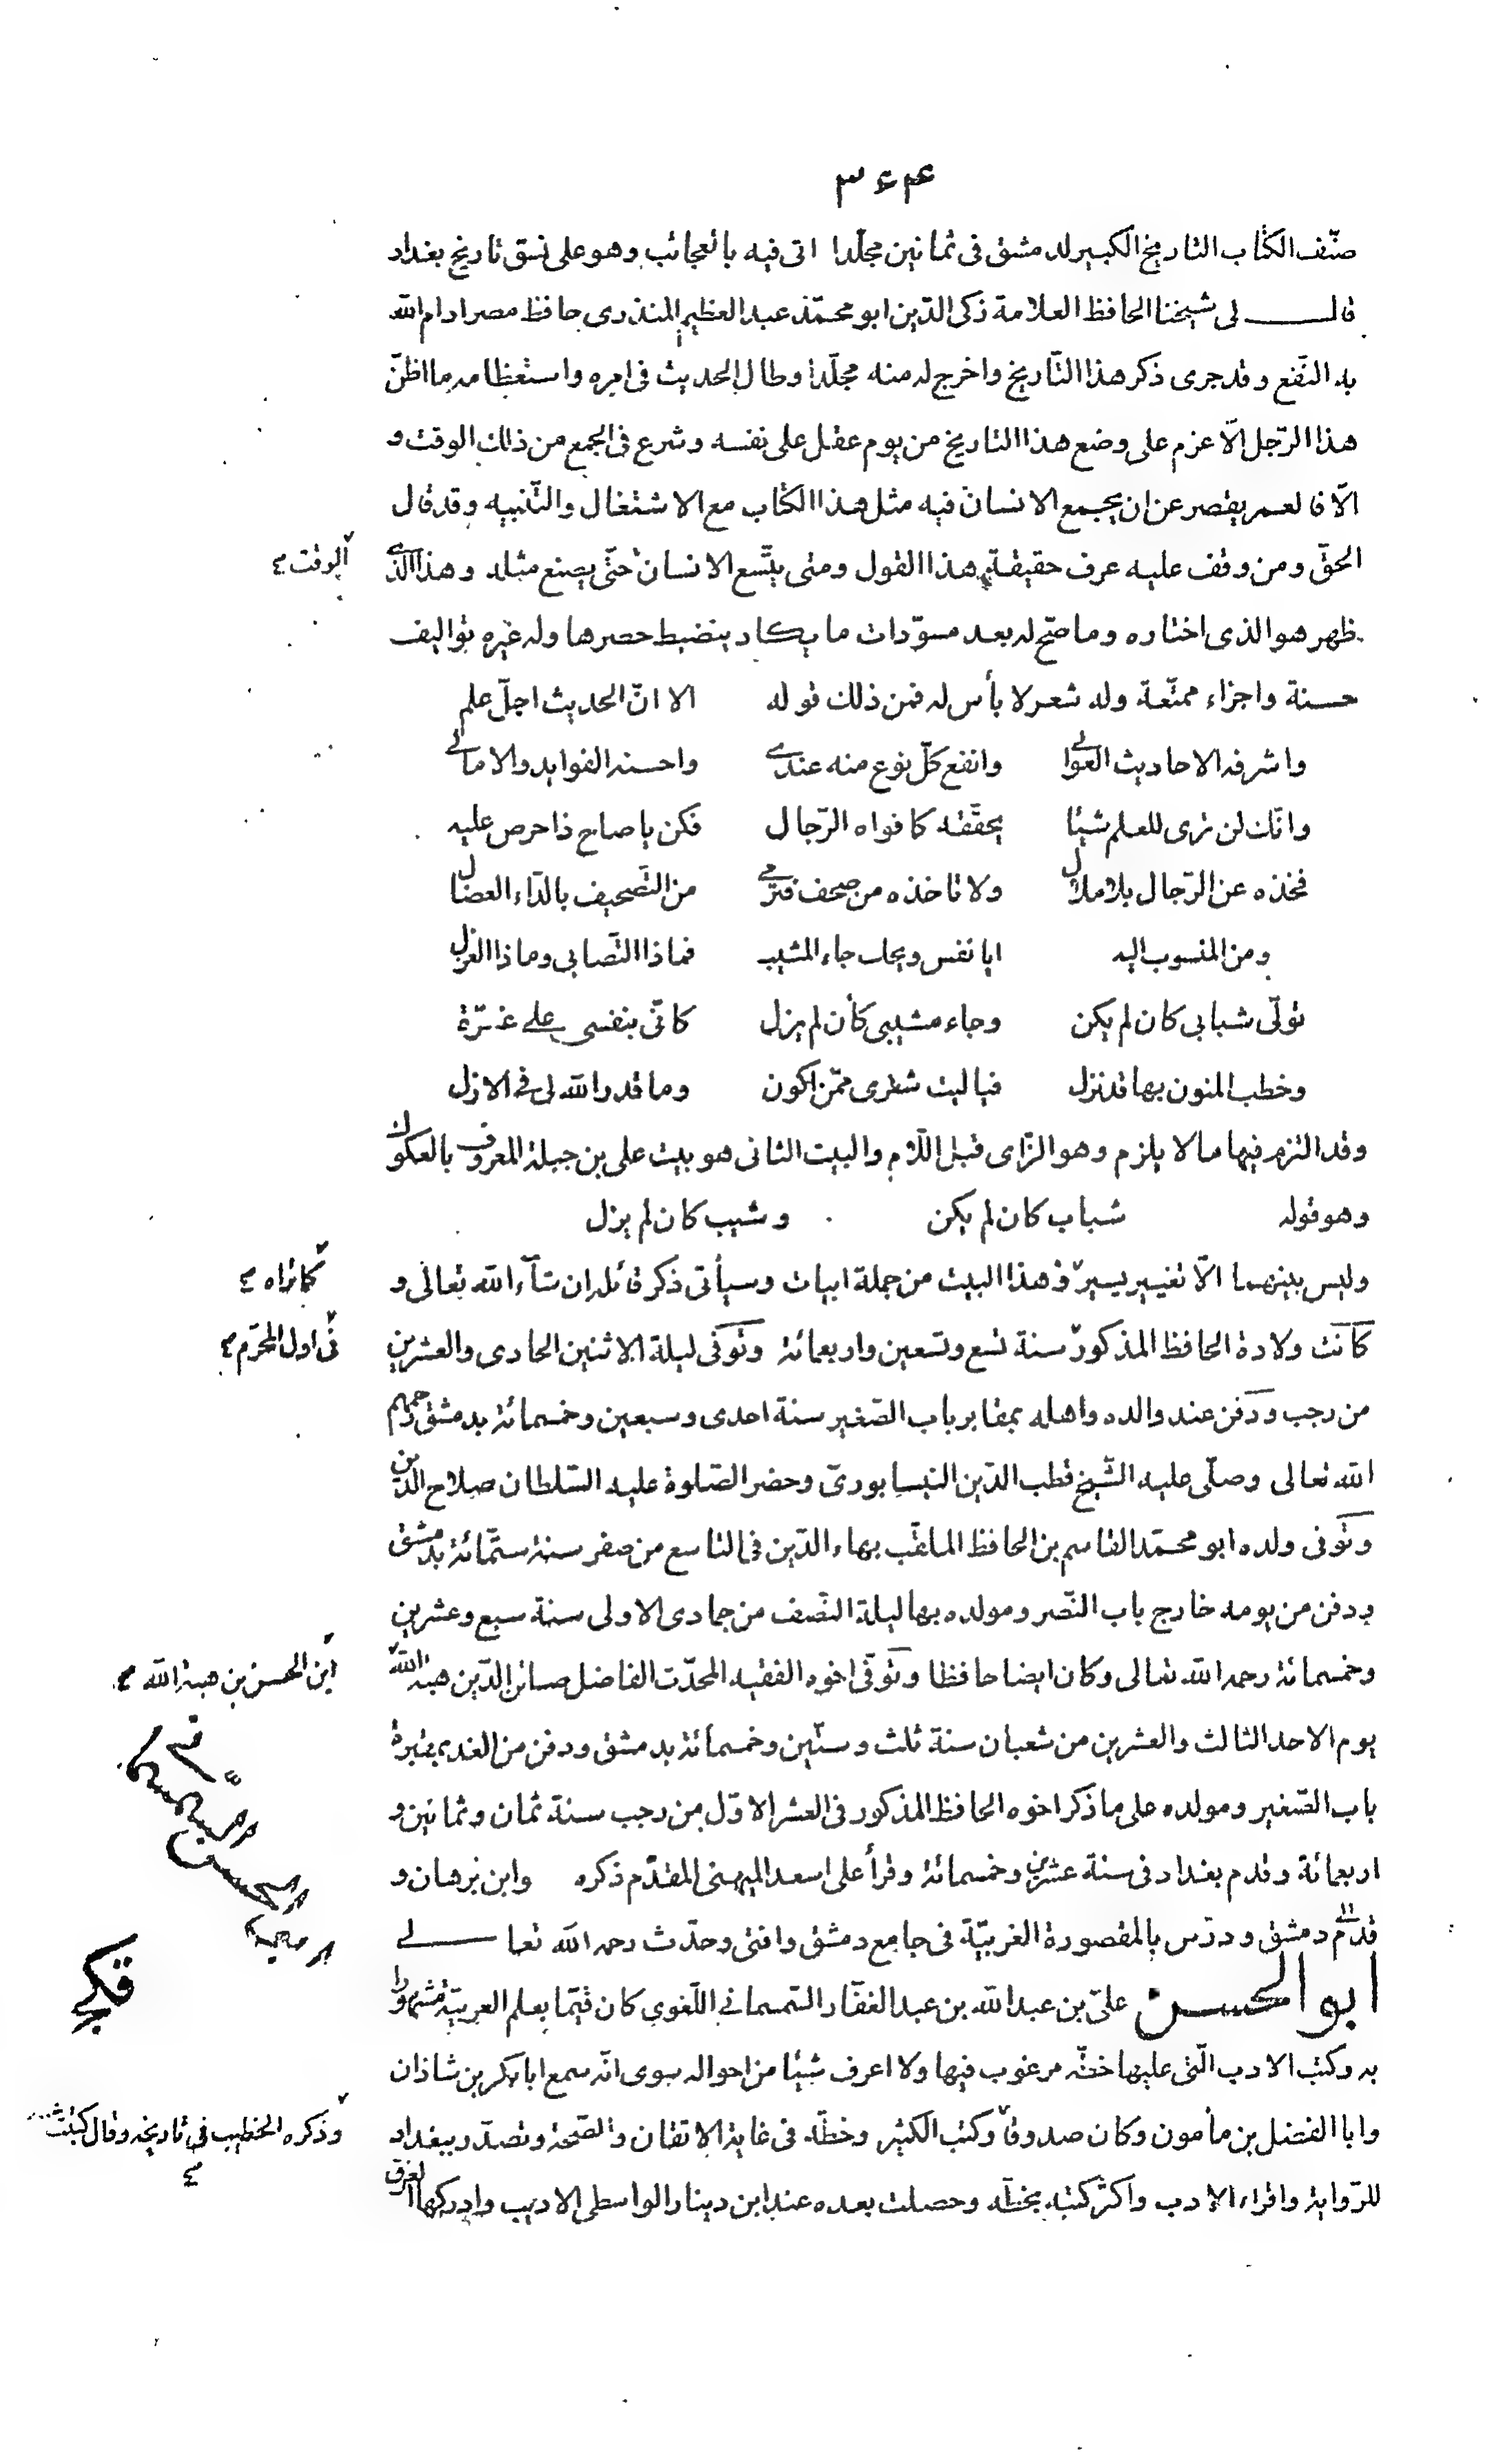 ٣٤٤
صنّف الكتاب التاريخ الكبير لدمشق فى ثمانين مجلّدا اتى فيه بالعجائب وهو على نسق تاريخ بغداد
قال لى شيخنا الحافظ العلامة زكى الدّين ابو محمّد عبد العظيم المنذرى حافظ مصر ادام الله
به النّفع وقد جرى ذكر هذا التّاريخ واخرج لى منه مجلّدا وطال الحديث فى امره واستعظامه ما اظنّ
هذا الرّجل الّا عزم على وضع هذا التاريخ من يوم عقل على نفسه وشرع فى الجمع من ذلك الوقت و
الّا فالعمر يقصر عن ان يجمع الانسان فيه مثل هذا الكتاب مع الاشتغال والتّنبيه وقد قال
الحقّ ومن وقف عليه عرف حقيقة هذا القول ومتى يتّسع الانسان حتّى يصنع مثله وهذا الذى
الوقت
ظهر هو الذى اختاره وما صحّ له بعد مسوّدات ما يكاد ينضبط حصرها وله غيره تواليف
حسنة واجزاء ممتّعة وله شعر لا بأس له فمن ذلك قوله الا انّ الحديث اجلّ علم
واشرفه الاحاديث العوالى وانفع كلّ نوع منه عندى واحسنه الفوايد والامالى
وانّك لن ترى للعلم شيئا يحقّقه كافواه الرّجال فكن يا صاح ذا حرص عليه
فخذه عن الرّجال بلا ملال ولا تاخذه من صحف فترمى من التّصحيف بالدّاء العضال
ومن المنسوب اليه ايا نفس ويحك جاء المشيب فماذا التّصابى وماذا الغزل
تولّى شبابى كان لم يكن وجاء مشيبى كأن لم يزل كانّى بنفسى على غرّة
وخطب المنون بها قد نزل فيا ليت شعرى ممّن اكون وما قدر الله لى فى الازل
وقد التزم فيها ما لا يلزم وهو الزّاى قبل اللّام والبيت الثانى هو بيت على بن جبلة المعروف بالعكوك
وهو قوله شباب كان لم يكن وشيب كان لم يزل
وليس بينهما الّا تغيير يسير وهذا البيت من جملة ابيات وسيأتى ذكر قائله ان شآء الله تعالى و
كما تراه
كانت ولادة الحافظ المذكور سنة تسع وتسعين واربعمائة وتوفى ليلة الاثنين الحادى والعشرين
فى اول المحرّم
من رجب ودفن عند والده واهله بمقابر باب الصّغير سنة احدى وسبعين وخمسمائة بدمشق رحمهم
الله تعالى وصلّى عليه الشّيخ قطب الدّين النيسابورىّ وحضر الصّلوة عليه السّلطان صلاح الدّين
وتوفى ولده ابو محمّد القاسم بن الحافظ الملقّب بهاء الدّين فى التاسع من صفر سنة ستّمائة بدمشق
ودفن من يومه خارج باب النّصر ومولده بها ليلة النّصف من جمادى الاولى سنة سبع وعشرين
وخمسمائة رحمه الله تعالى وكان ايضا حافظا وتوفّى اخوه الفقيه المحدّث الفاضل صائن الدّين هبة الله
ابن الحسن بن هبة الله
يوم الاحد الثالث والعشرين من شعبان سنة ثلث وستّين وخمسمائة بدمشق ودفن من الغد بمقبرة
باب الصّغير ومولده على ما ذكر اخوه الحافظ المذكور فى العشر الاوّل من رجب سنة ثمان وثمانين و
اربعمائة وقدم بغداد فى سنة عشرين وخمسمائة وقرأ على اسعد الميهنى المقدّم ذكره وابن برهان و
قدم الى دمشق ودرّس بالمقصورة الغربيّة فى جامع دمشق وافتى وحدّث رحمه الله تعالى
ابو الحسن علىّ بن عبد الله بن عبد الغفّار السّمسمانى اللّغوى كان قيّما بعلم العربيّة مشهورا
به وكتب الادب الّتى عليها خطّه مرغوب فيها ولا اعرف شيئا من احواله سوى انّه سمع ابا بكر بن شاذان
وابا الفضل بن مأمون وكان صدوقا وكتب الكثير وخطّه فى غاية الاتقان والصّحّة وتصدّر ببغداد
وذكره الخطيب فى تاريخه وقال كتبت
للرّواية واقراء الادب واكثر كتبه بخطّه وحصلت بعده عند ابن دينار الواسطى الاديب وادركها الغرق